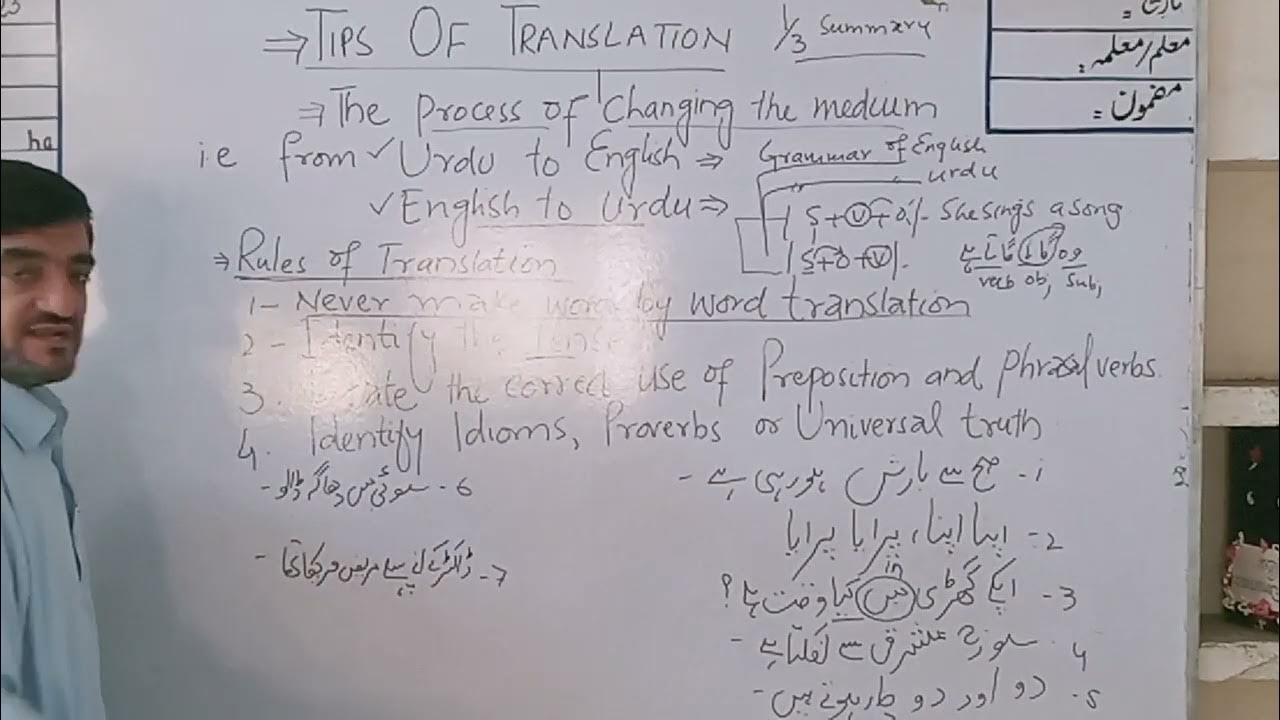 ⇒ TIPS OF TRANSLATION 1/3 Summary
⇒ The process of Changing the medium
i.e from ✓ Urdu to English ⇒ Grammar of English
urdu
✓ English to Urdu ⇒ S+V+O/- She sings a song
S+O+V/- وہ گانا گاتا ہے
verb ob, sub,
⇒ Rules of Translation
1- Never make word by word translation
2- Identify the Tense
3. the correct use of Preposition and phrasal verbs
4. Identify Idioms, Proverbs or Universal truth
1- صبح سے بارش ہو رہی ہے -
2- اپنا اپنا، پرایا پرایا
in
3- آپکے گھڑی میں کیا وقت ہے؟
4 سورج مشرق سے نکلتا ہے -
5- دو اور دو چار ہوتے ہیں -
6- سوئی میں دھاگہ ڈالو -
7- ڈاکٹر کے آنے سے پہلے مریض مر چکا تھا -
تاریخ =
معلم/معلمہ =
مضمون =
he